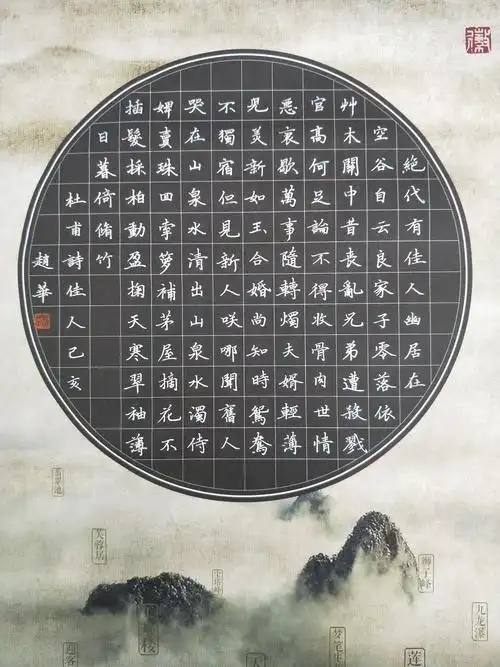 絕代有佳人幽居在
空谷自云良家子零落依
艸木關中昔喪亂兄弟遭殺戮
官高何足論不得收骨肉世情
惡衰歇萬事隨轉燭夫婿輕薄
兒美新如玉合婚尚知時鴛鴦
不獨宿但見新人咲哪聞舊人
哭在山泉水清出山泉水濁侍
婢賣珠回牽蘿補茅屋摘花不
插髮採柏動盈掬天寒翠袖薄
日暮倚脩竹
杜甫詩佳人己亥
趙華
徽
翡翠池
芙蓉居
獅子峰
九龙瀑
梦笔生
迎客
人
莲